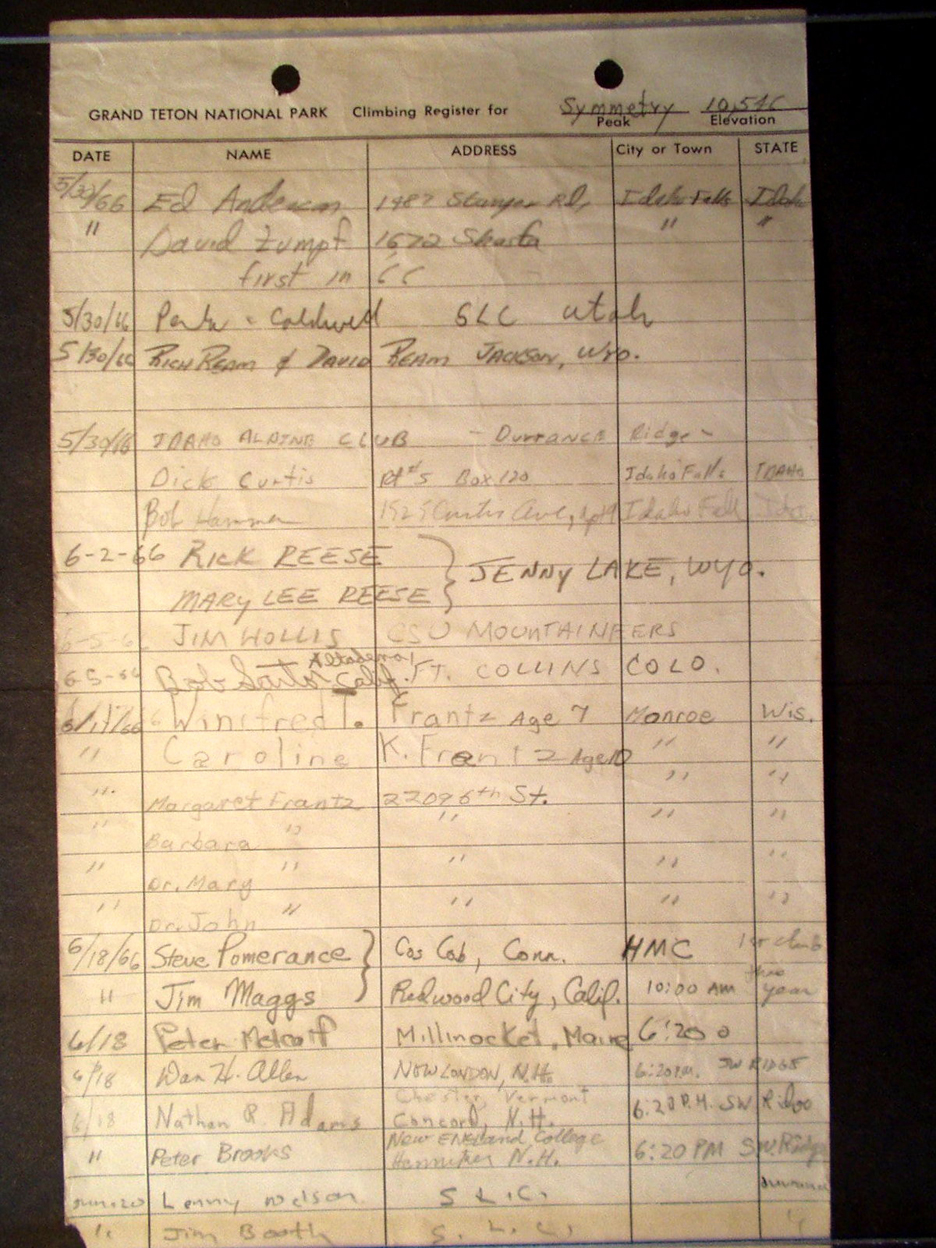 GRAND TETON NATIONAL PARK Climbing Register for Symmetry 10,546
Peak Elevation
DATE NAME ADDRESS City or Town STATE
5/30/66 Ed Anderson 1487 Rd, Idaho Falls Idaho
" David Zumpf 1672 " "
first in CC
5/30/66 Caldwell SLC Utah
5/30/66 RICH REAM & DAVID REAM JACKSON, WYO.
5/30/66 IDAHO ALPINE CLUB - DURRANCE Ridge -
Dick Curtis Rt #5 Box 120 Idaho Falls IDAHO
Bob 1925 Curtis Ave, Idaho Fall
6-2-66 RICK REESE
JENNY LAKE, WYO.
MARY LEE REESE
6-5-66 JIM HOLLIS CSU MOUNTAINEERS
Altadena
6-5-66 Bob Calif. FT. COLLINS COLO.
6/17/66 Winifred T. Frantz Age 7 Monroe Wis.
" Caroline K. Frantz Age 10 " "
" Margaret Frantz 2209 6th St. " "
" Barbara " " " "
" Dr. Mary " " " "
" Dr. John " " " "
6/18/66 Steve Pomerance Cos Cob, Conn. HMC 1st climb
this
" Jim Maggs Redwood City, Calif. 10:00 AM year
6/18 Peter Metcalf Millinocket, Maine 6:20
6/18 Dan H. Allen NEW LONDON, N.H. 6:20 P.M. SW RIDGE
Chester, Vermont
6/18 Nathan R. Adams Concord, N.H. 6:20 P.M. SW Ridge
New ENGLAND College
" Peter Brooks Henniker N.H. 6:20 PM S.W. Ridge
June 20 Lenny Nelson S.L.C. Durrance
" Jim Booth S.L.C. "